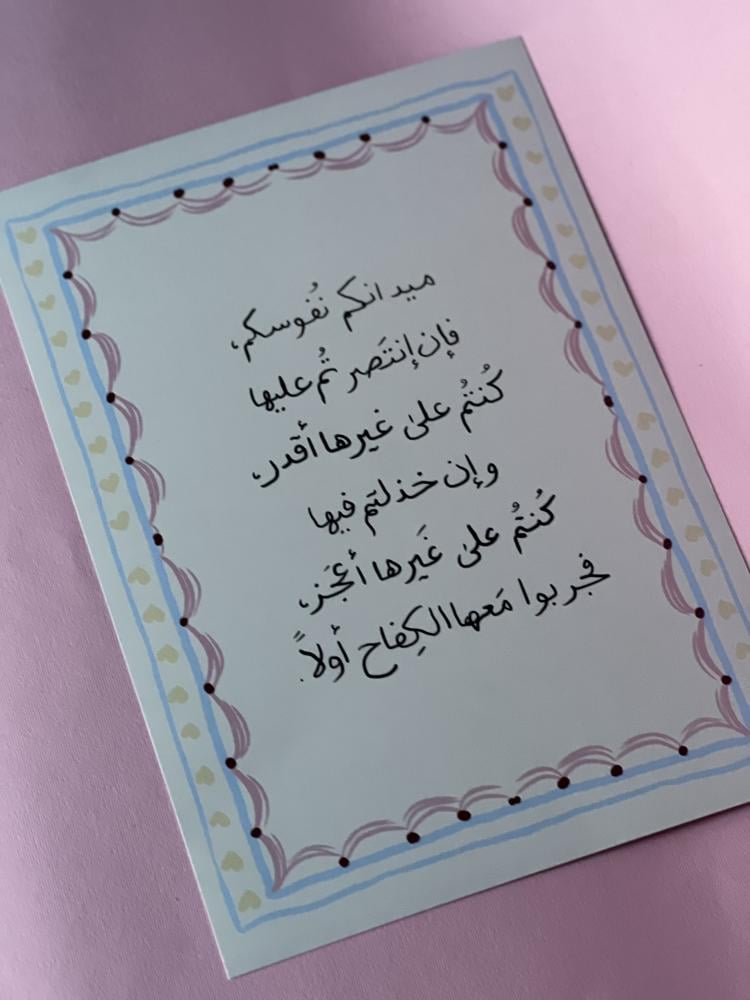 ميدانكم نُفوسكم،
فإن إنتَصر تُم عليها
كُنتُم على غيرها أقدر،
وإن خذلتم فيها
كُنتُم على غَيرها أعجَز،
فجربوا مَعها الكِفاح أولاً.